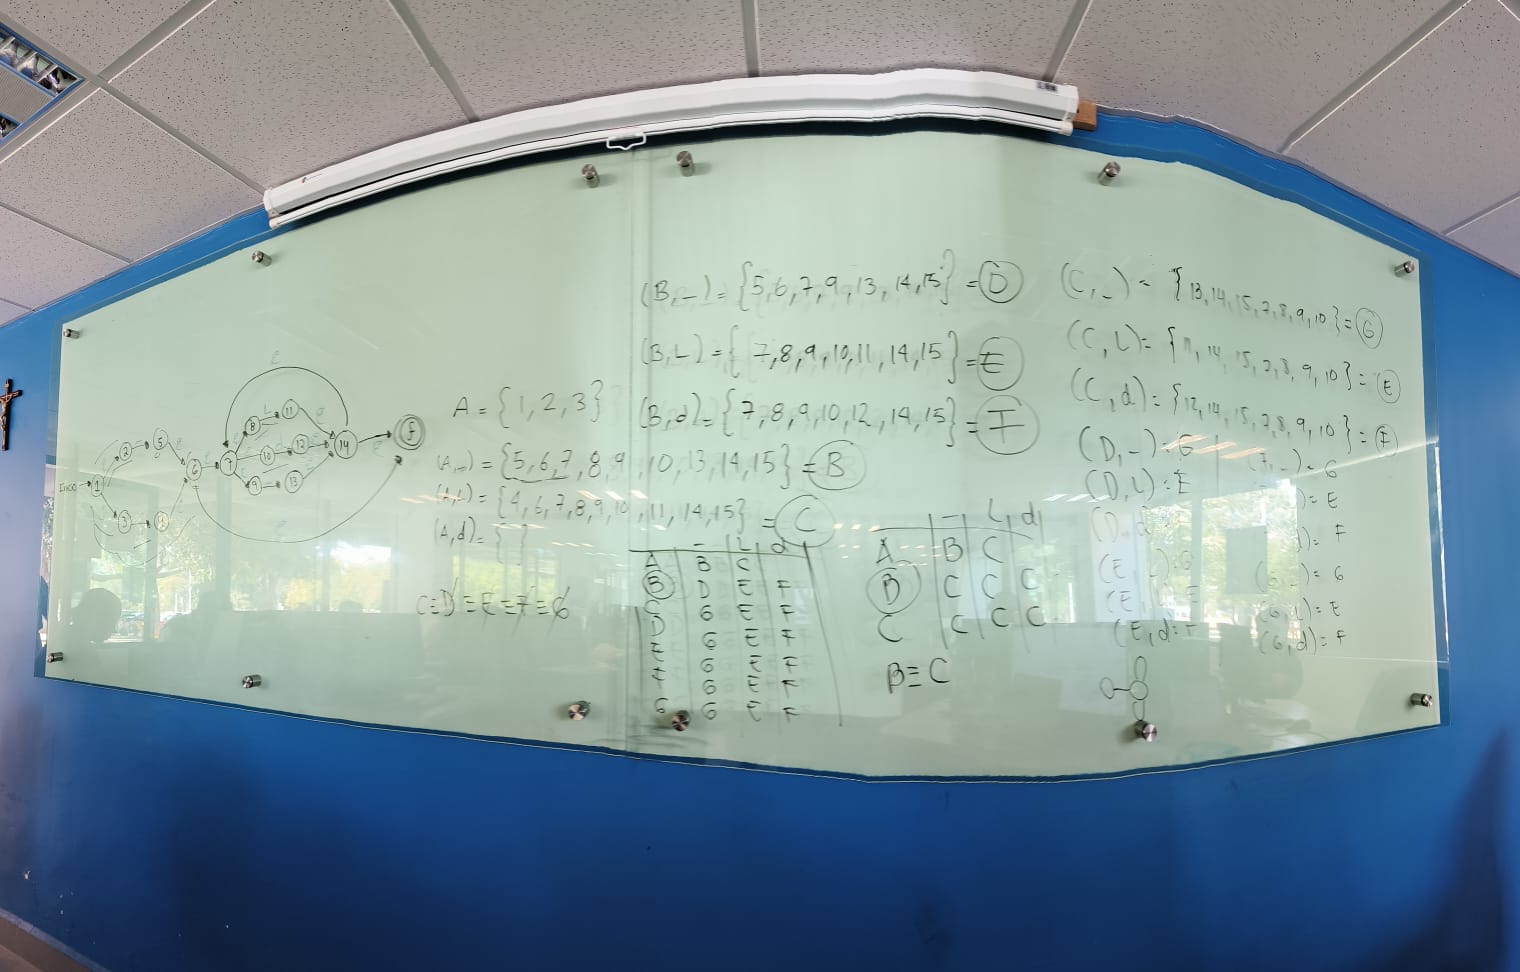 e
Inicio
1 2 5 6 7 8 11 10 12 9 13 14 f
3
e
A = {1, 2, 3}
(A,_) = {5,6,7,8,9,10,13,14,15} = B
(A,L) = {4,6,7,8,9,10,11,14,15} = C
(A,d) = { }
C≡D≡E≡F≡G
(B,_) = {5,6,7,9,13,14,15} = D
(B,L) = {7,8,9,10,11,14,15} = E
(B,d) = {7,8,9,10,12,14,15} = F
_ L d
A B C
B D E F
C G E F
D G E F
E G E F
F G E F
G G E F
_ L d
A B C
B C C C
C C C C
B≡C
(C,_) = {13,14,15,7,8,9,10} = G
(C,L) = {11,14,15,7,8,9,10} = E
(C,d) = {12,14,15,7,8,9,10} = F
(D,_) = G
(D,L) = E
(D,d
(E,_) = G
(E, E
(E,d) = F
(F,_) = G
) = E
) = F
(G,_) = G
(G,L) = E
(G,d) = F